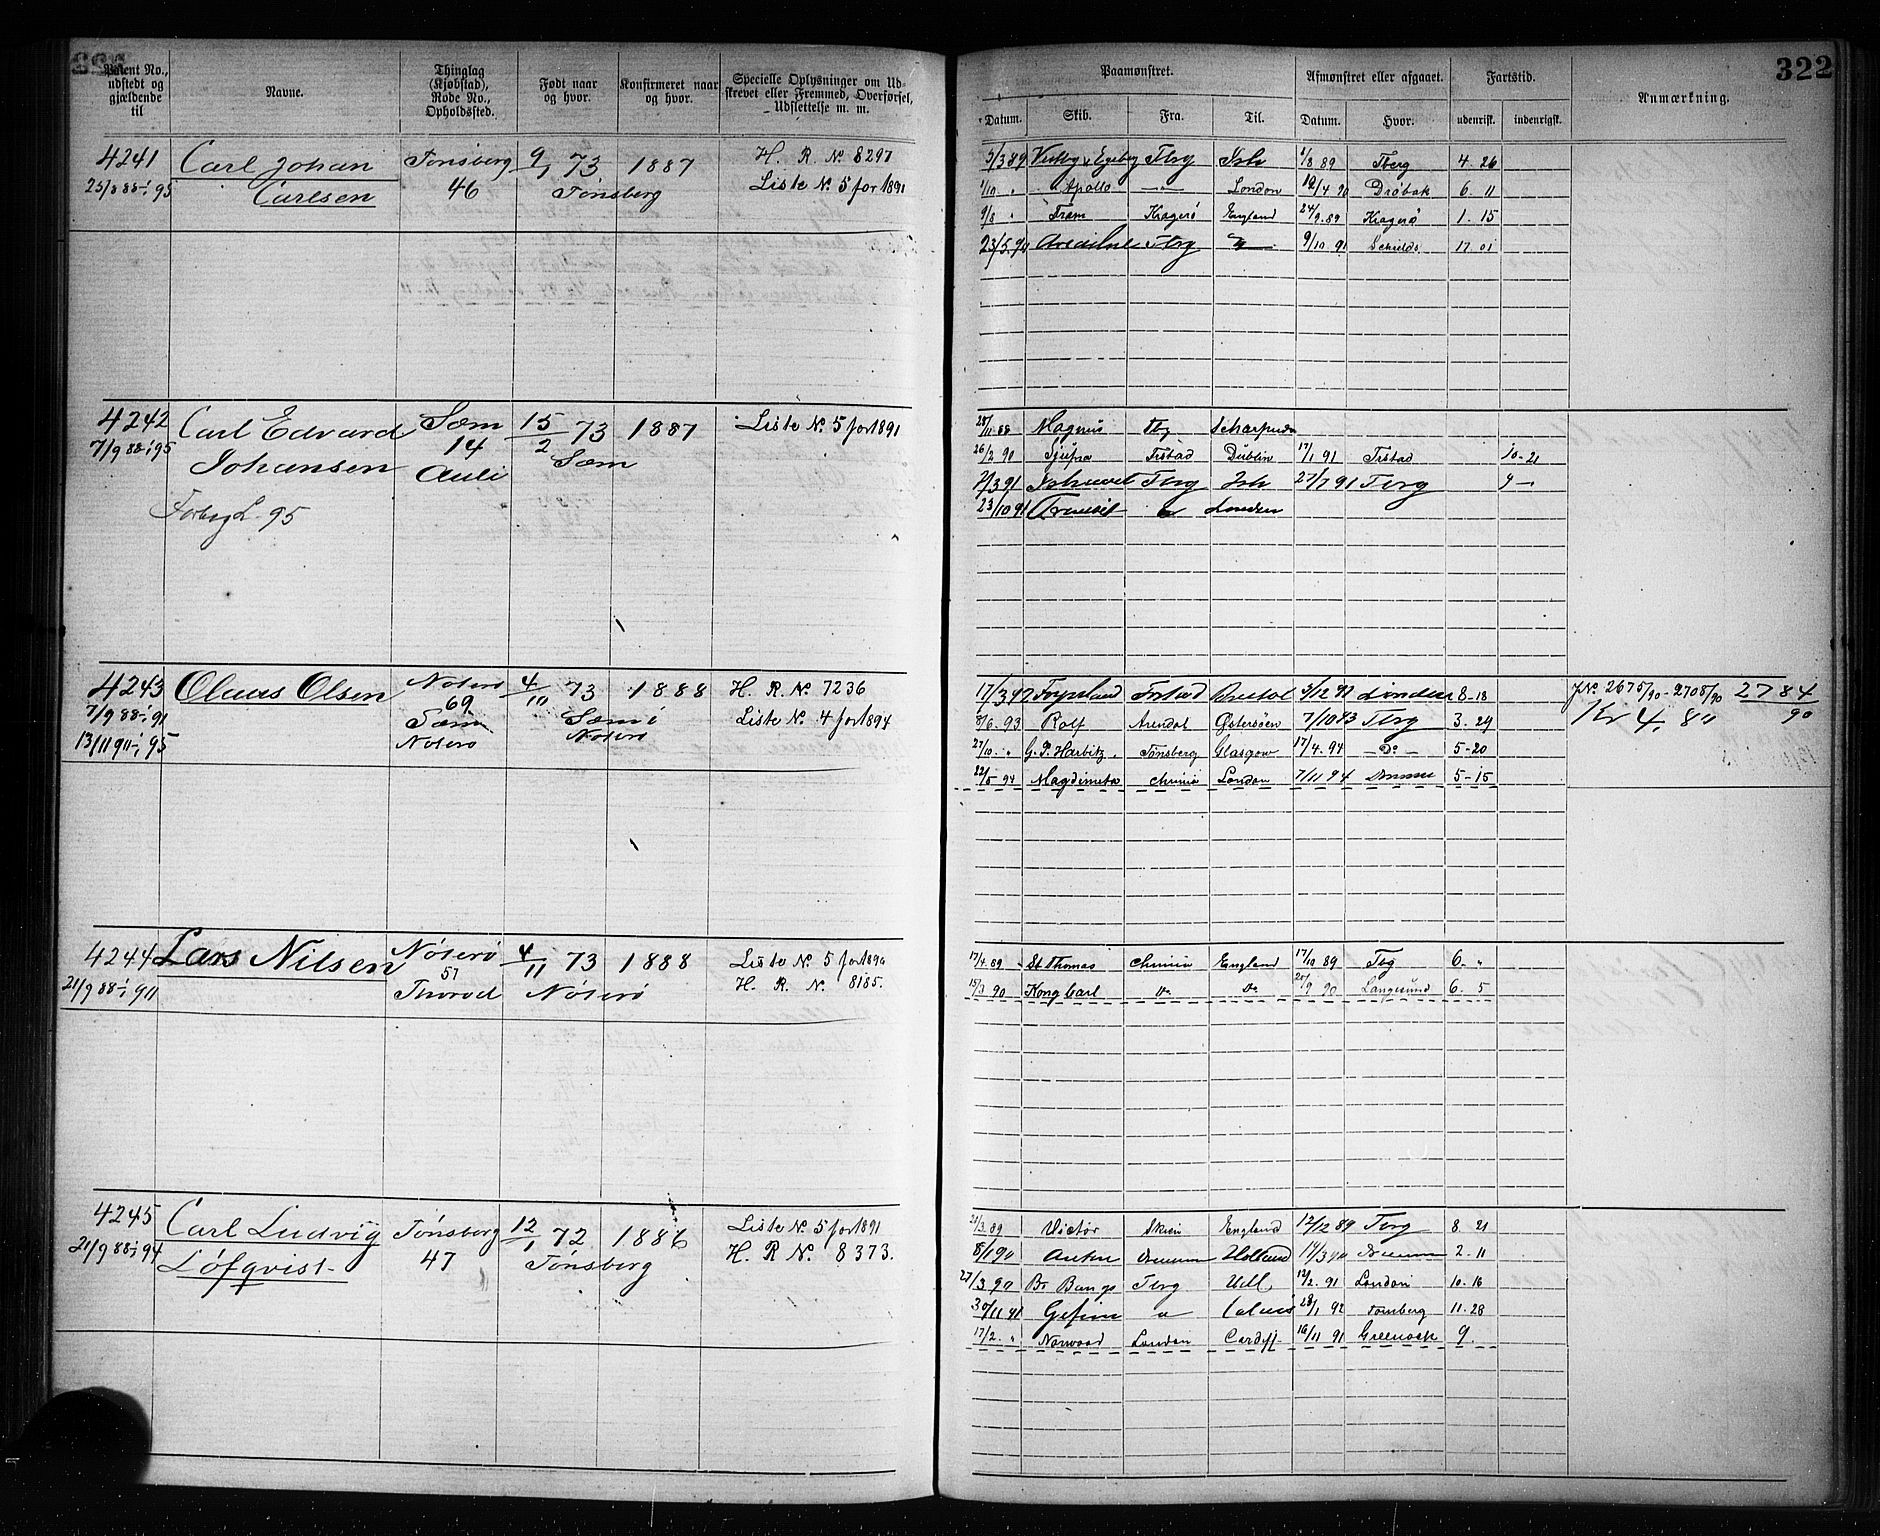 322
Patent No., udstedt og gjældende til
Navne.
Thinglag (Kjøbstad), Rode No., Opholdssted.
Født naar og hvor.
Konfirmeret naar og hvor.
Specielle Oplysninger om Udskrevet eller Fremmed, Overførsel, Udslettelse m. m.
4241 Carl Johan Tønsberg 9/1 73 1887 H. R. No 8297
25/8 88-i 95 Carlsen 46 Tønsberg Liste No. 5 for 1891
4242 Carl Edvard Sæm 15/2 73 1887 Liste No. 5 for 1891
7/9 88-i 95 Johansen 14 Sæm
Auli
95
4243 Olaus Olsen Nøterø 4/11 73 1888 H. R. No. 7236
7/9 88-i 91 69 Sæm i Liste No. 4 for 1894
13/11 91-i 95 Sæm Nøterø
Nøterø
4244 Lars Nilsen Nøterø 4/11 73 1888 Liste No. 5 for 1890
21/9 88-i 911 57 Nøterø H. R. No. 8185.
Thorød
4245 Carl Ludvig Tønsberg 12/1 72 1886 Liste No. 5 for 1891
21/9 88-i 94 Løfqvist 47 Tønsberg H. R. No. 8373.
Paamønstret.
Afmønstret eller afgaaet.
Fartstid.
Anmærkning.
322
Datum. Skib. Fra. Til. Datum. Hvor. udenrigsk. indenrigsk.
5/3 89 Tbrg Ish 1/8 89 Tberg 4. 26
1/10 " Apollo — London 12/4 90 Drøbak 6. 11
9/8 " Fram Kragerø England 24/9. 89 Kragerø 1. 15
23/5. 90 Tbrg 9/10. 91 Schields 17. 01
28/11 88 Magnus Tbg
26/2 90 Frstad Dublin 17/1 91 Frstad 10-21
Tbrg Ish 27/7 91 Tbrg
23/10 91 London
17/3 92 Frstad London 8-18 JNo 2675/90 - 2708/90 2784/90
8/6. 93 Rolf Arendal Østersøen 7/10 93 Tbrg 3. 29 Kr 4, 80
27/10. " G. P. Harbitz. Tønsberg Glasgow 17/4. 94 — Do — 5-20
22/5 94 London 7/11 94 5-15
17/4. 89 St Thomas England 17/10 89 Tbg 6. "
15/3 90 Kong Carl Do Do 25/9 90 Langesund 6. 5
21/3. 89 Victor Skien England 12/12 89 Tbrg 8 21
8/1 90 Holland 2. 11
27/3 90 Tbrg Hull 12/2. 91 London 10. 16
30/11 91 Gefion 28/1 92 Tønsberg 11. 28
17/2. " Norwood London Cardiff. 16/11 91 Greenock 9.